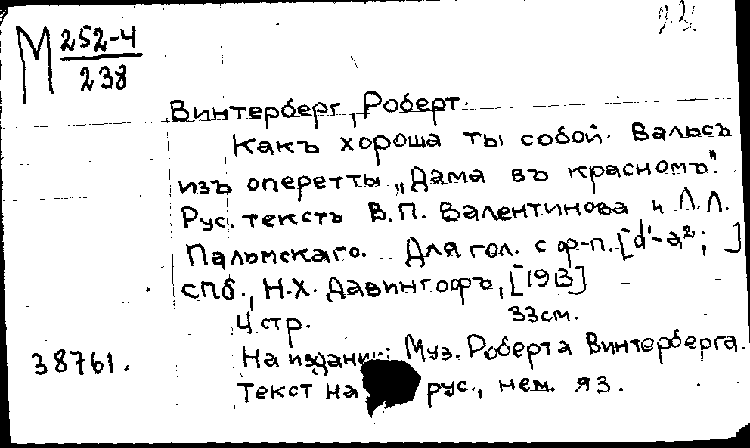 М 252-4
238
Винтерберг, Роберт.
Какъ хороша ты собой. Вальсъ
изъ оперетты „Дама въ красномъ".
Рус. текстъ В.П. Валентинова и Л.Л.
Пальмскаго. Для гол. с ф-п. [d¹-a²; ]
СПб., Н.Х. Давингофъ, [1913]
4 стр. 33см.
38761. На издании: Муз. Роберта Винтерберга.
Текст на рус., нем. яз.